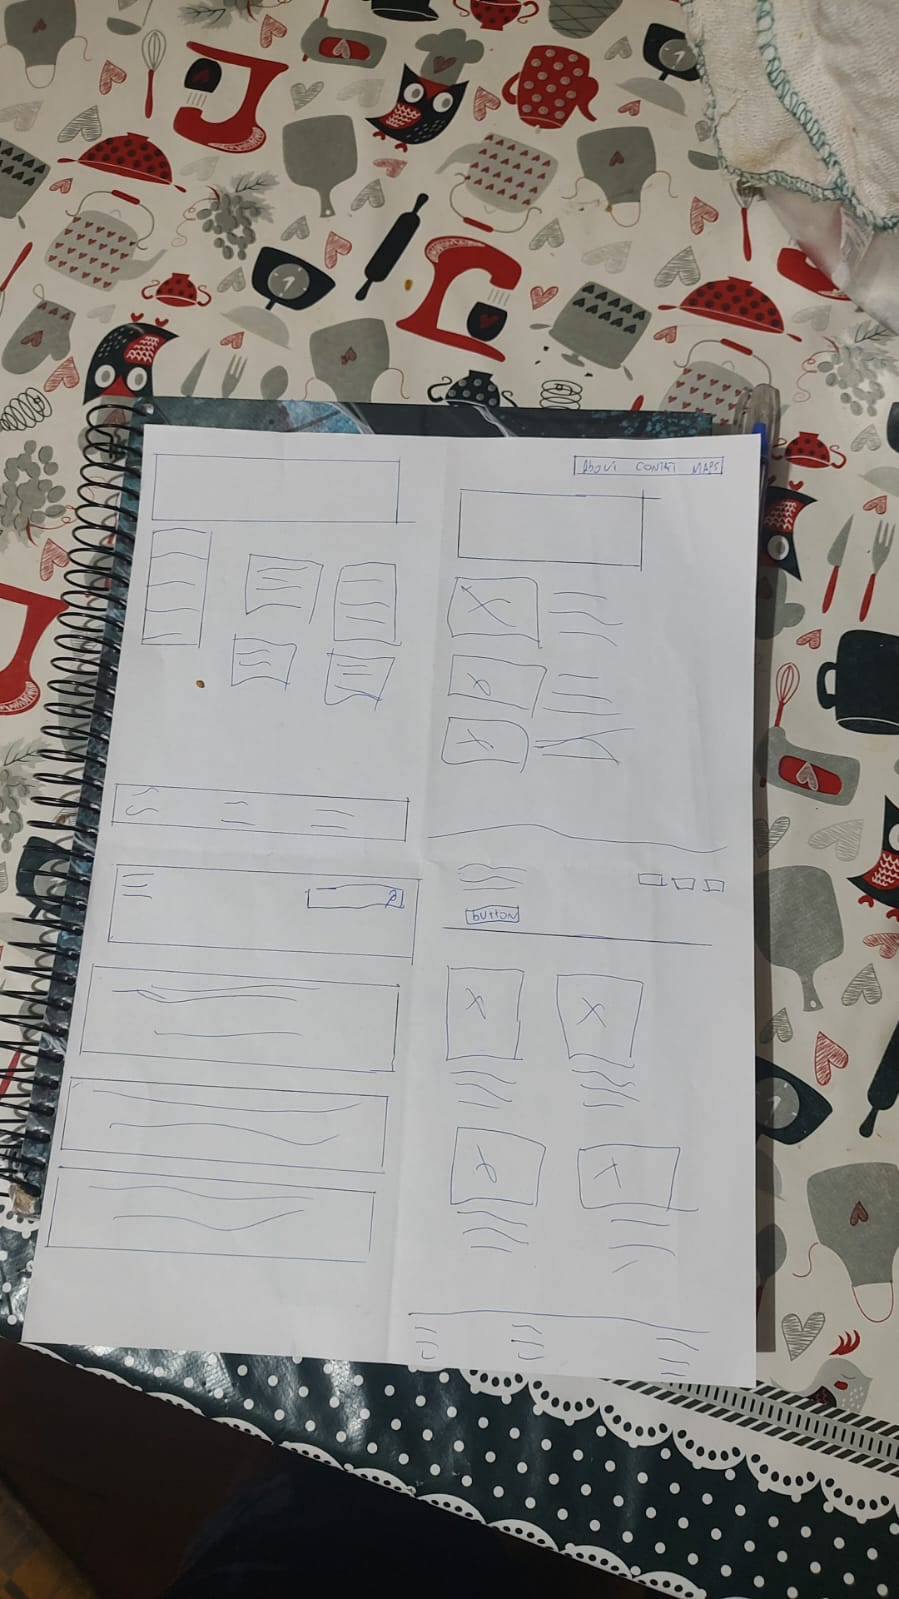 About CONTAT MAPS
button